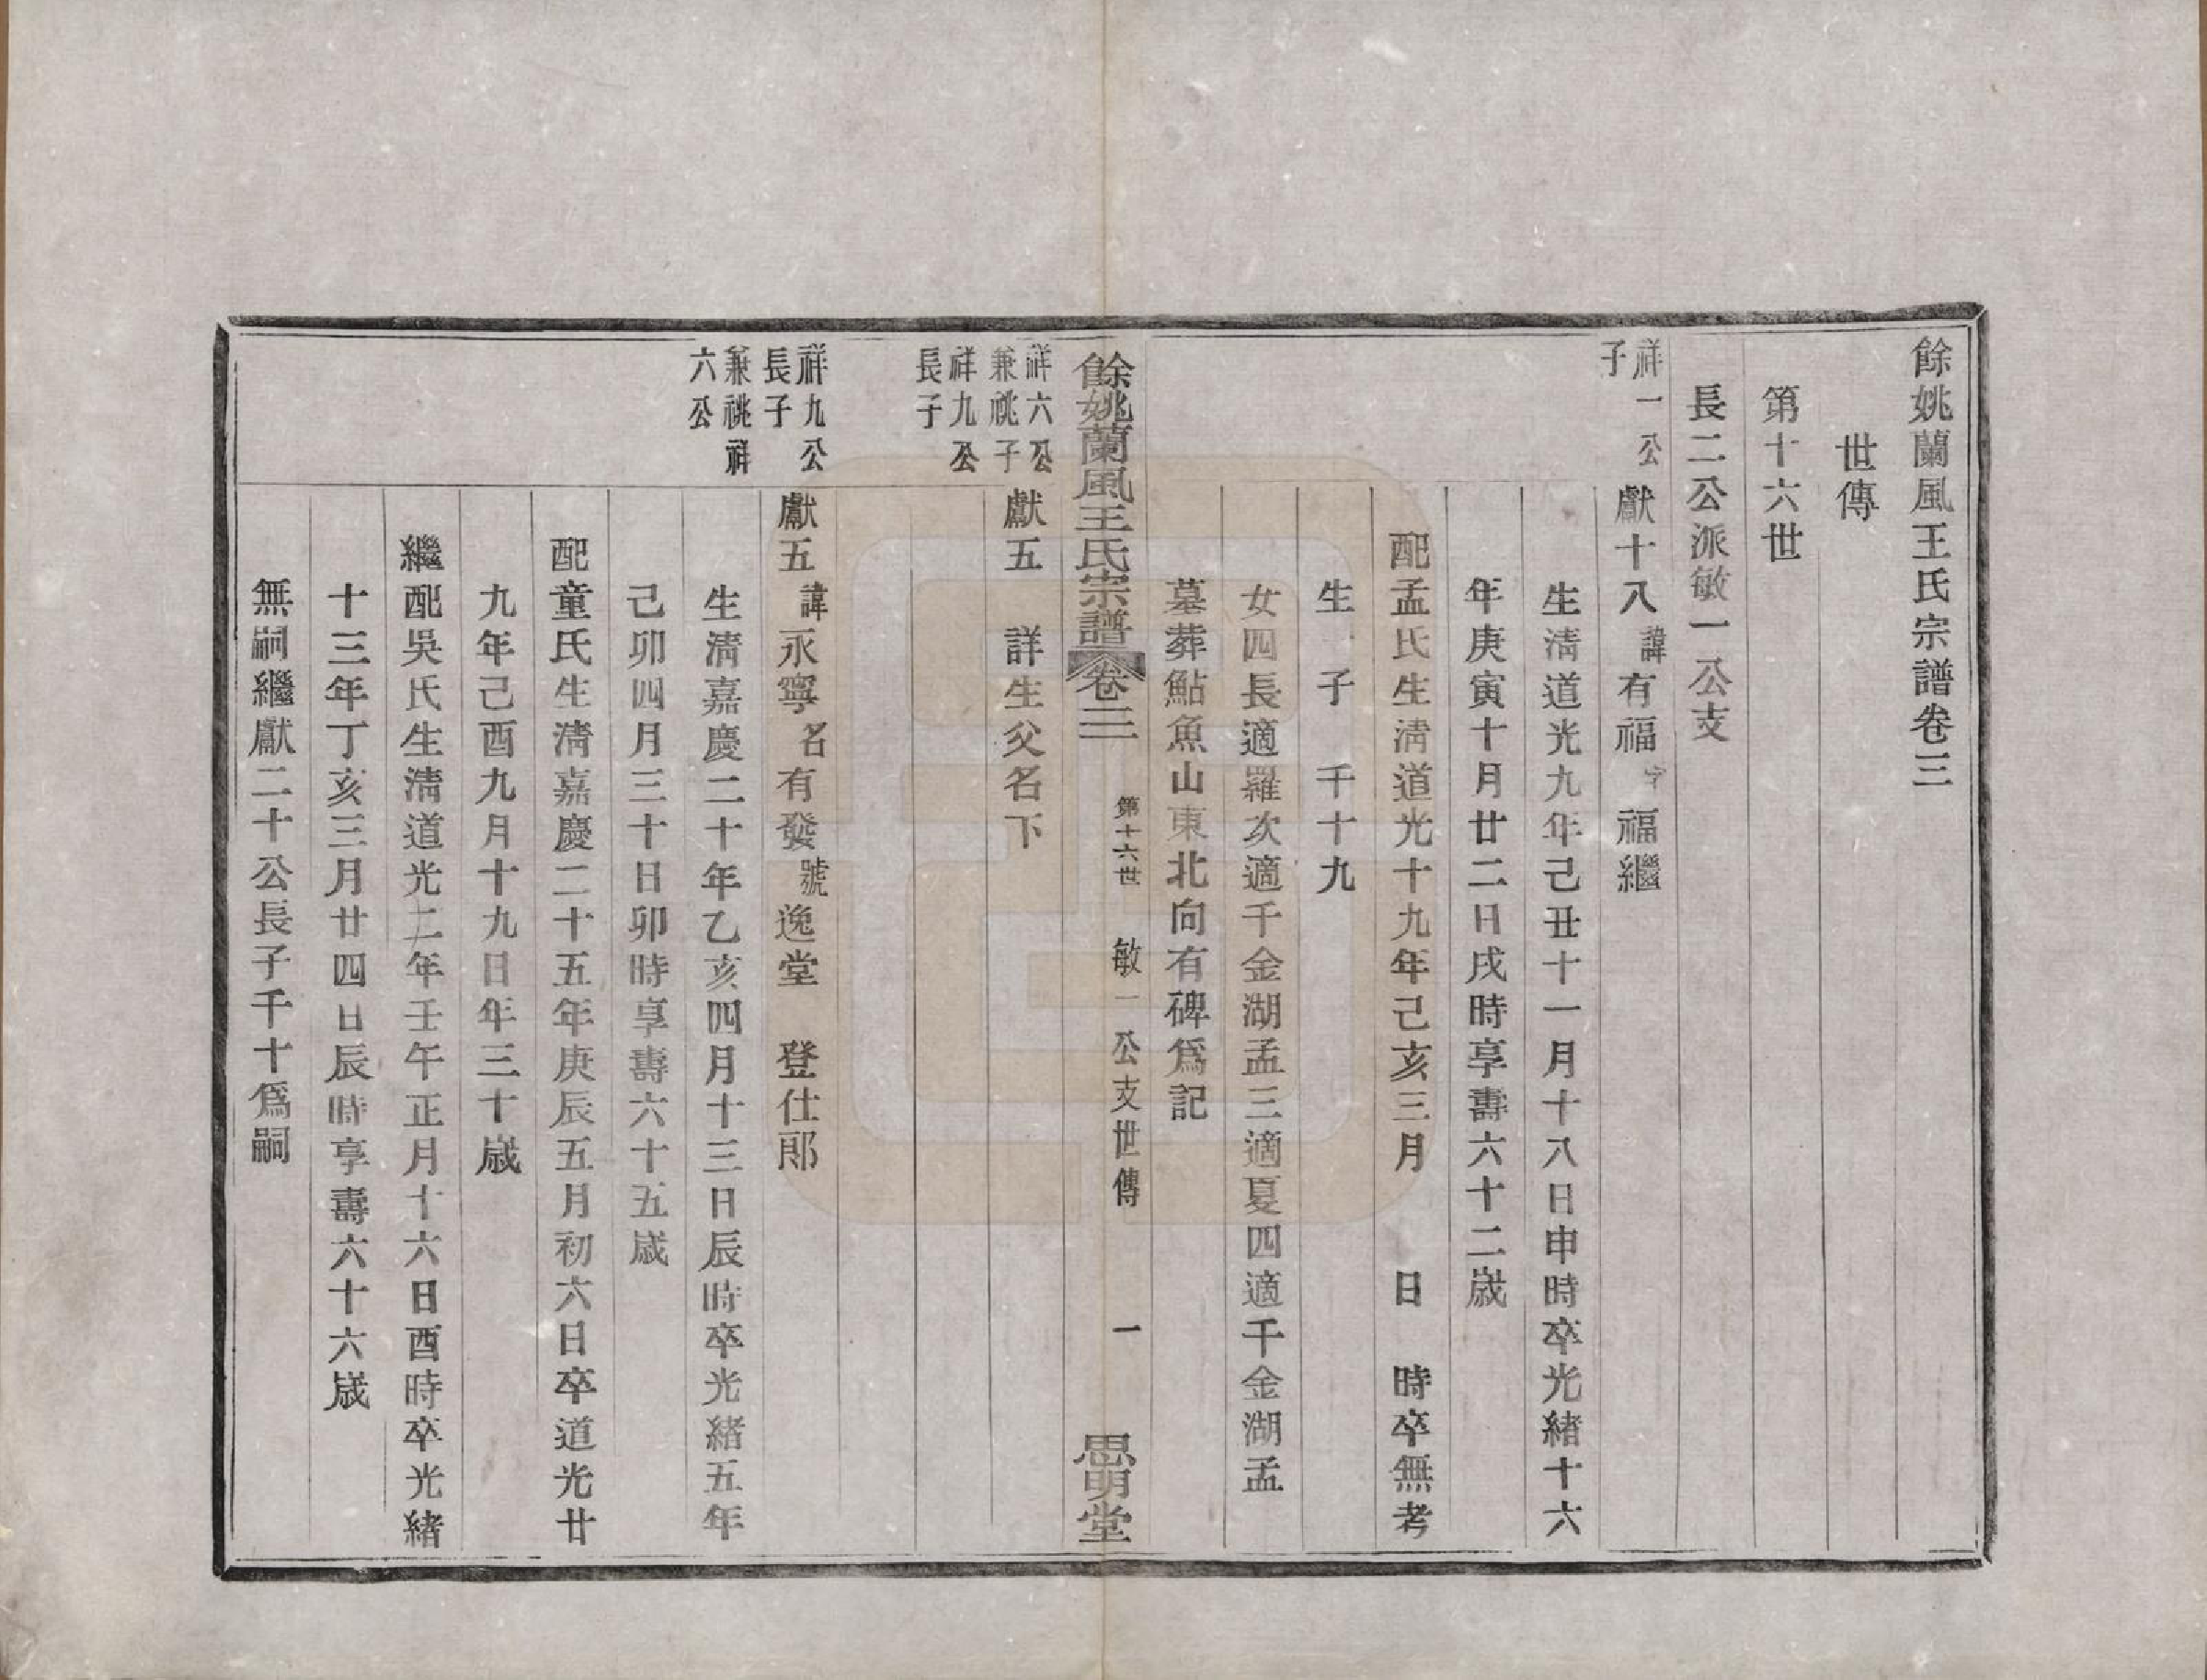 餘姚蘭風王氏宗譜卷三
世傳
第十六世
長二公派敏一公支
祥一公子
獻十八諱有福字福繼
生淸道光九年己丑十一月十八日申時卒光緖十六
年庚寅十月廿二日戌時享壽六十二歲
配孟氏生淸道光十九年己亥三月 日 時卒無考
生 子 千十九
女四長適羅次適千金湖孟三適夏四適千金湖孟
墓葬鮎魚山東北向有碑爲記
餘姚蘭風王氏宗譜 卷三 第十六世 敏一公支世傳 一 思明堂
祥六公兼祧子祥九公長子
獻五 詳生父名下
祥九公長子兼祧祥六公
獻五諱永寧名有發號逸堂 登仕郎
生淸嘉慶二十年乙亥四月十三日辰時卒光緖五年
己卯四月三十日卯時享壽六十五歲
配童氏生淸嘉慶二十五年庚辰五月初六日卒道光廿
九年己酉九月十九日年三十歲
繼配吳氏生淸道光二年壬午正月十六日酉時卒光緖
十三年丁亥三月廿四日辰時享壽六十六歲
無嗣繼獻二十公長子千十爲嗣